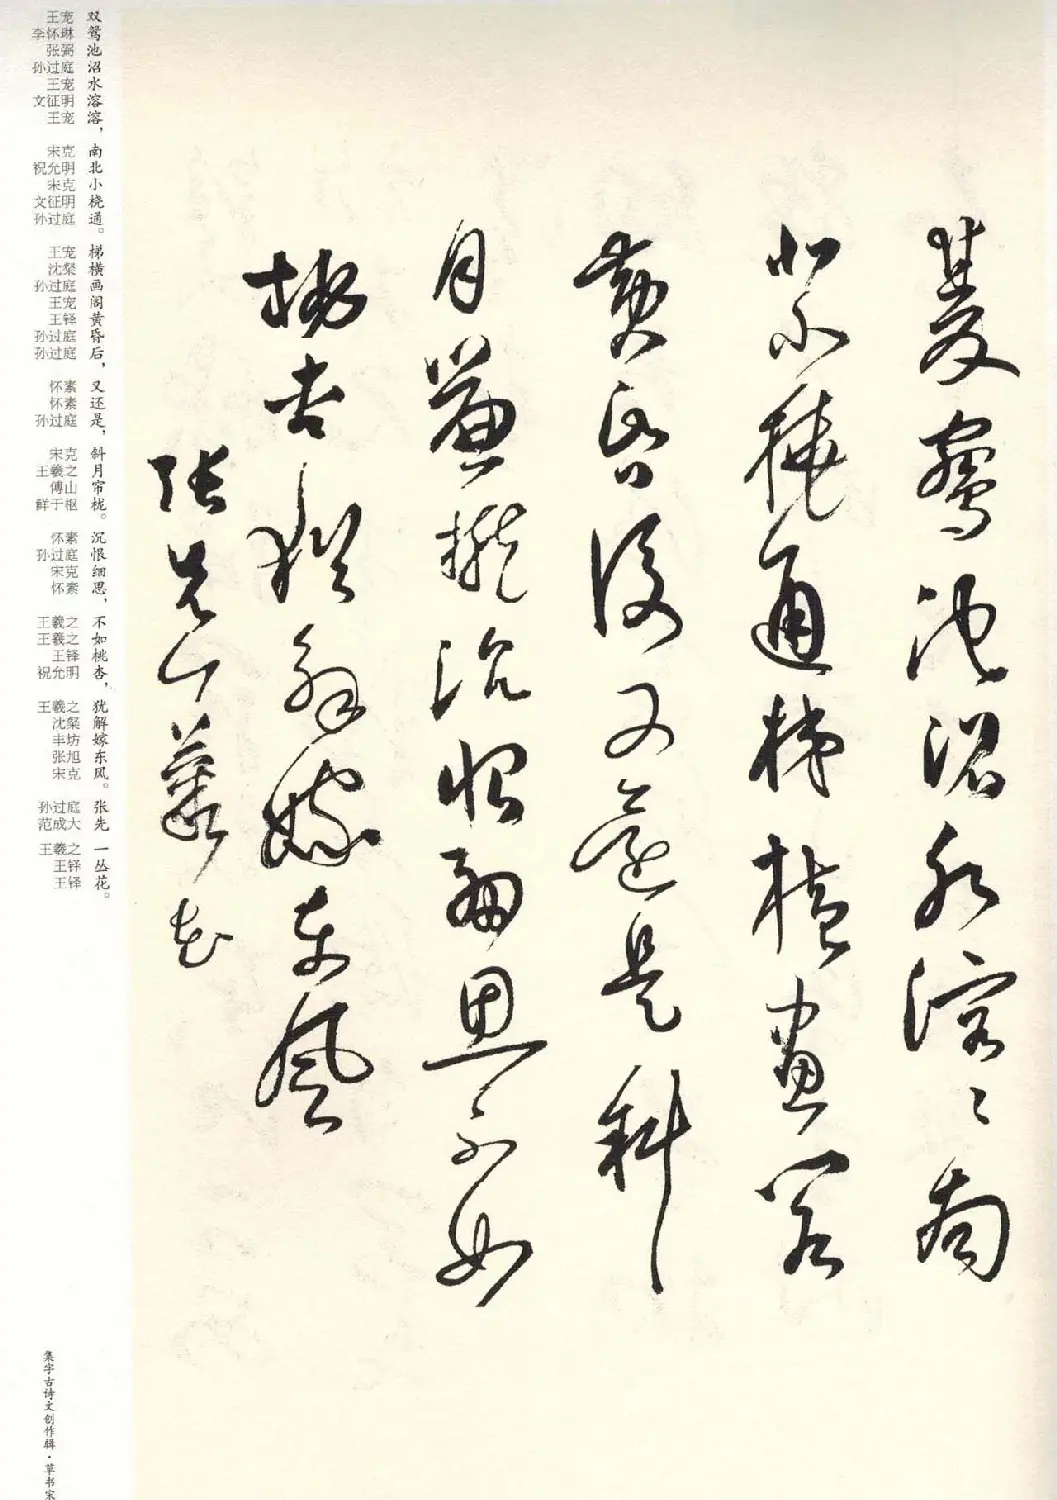 雙鴛池沼水溶〻南
北小橈通梯橫畫閣
黃昏後又還是斜
月簾櫳沉恨細思不如
桃杏猶解嫁東風
張先一叢花
双鸳池沼水溶溶，南北小桡通。梯横画阁黄昏后，又还是，斜月帘栊。沉恨细思，不如桃杏，犹解嫁东风。张先 一丛花。
王宠
李怀琳
张弼
孙过庭
王宠
文征明
王宠
宋克
祝允明
宋克
文征明
孙过庭
王宠
沈粲
孙过庭
王宠
王铎
孙过庭
孙过庭
怀素
怀素
孙过庭
宋克
王羲之
傅山
鲜于枢
怀素
孙过庭
宋克
怀素
王羲之
王羲之
王铎
祝允明
王羲之
沈粲
丰坊
张旭
宋克
孙过庭
范成大
王羲之
王铎
王铎
集字古诗文创作辑·草书宋